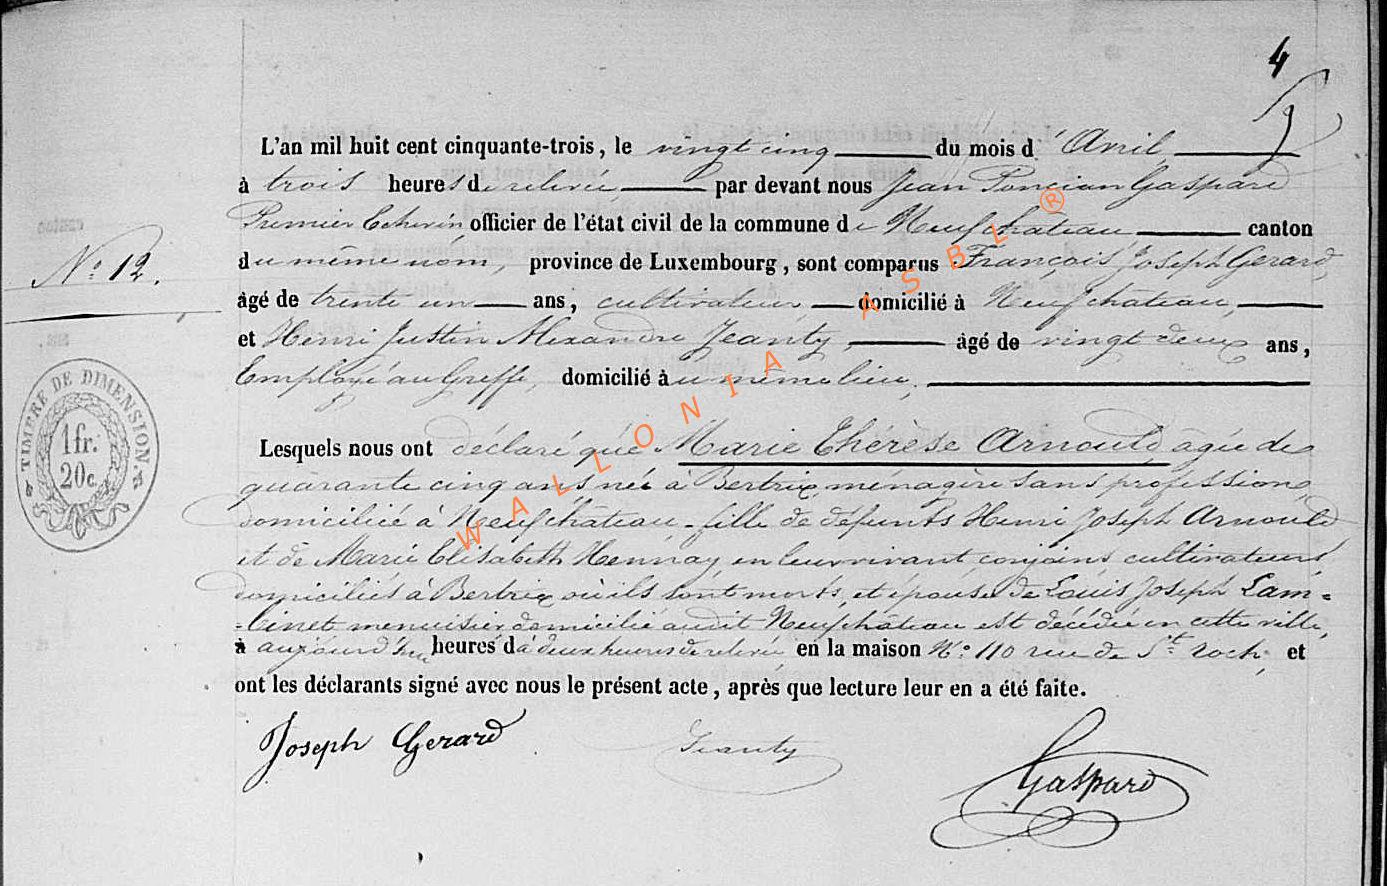 4
L'an mil huit cent cinquante-trois, le vingt cinq du mois d'Avril
à trois heures de relevée par devant nous Jean Poncian Gaspard
Premier Echevin officier de l'état civil de la commune de Neufchâteau canton
du même nom, province de Luxembourg, sont comparus François Joseph Gerard,
N° 12.
âgé de trente un ans, cultivateur, domicilié à Neufchâteau,
et Henri Justin Alexandre Jeanty, âgé de vingt deux ans,
Employé au Greffe, domicilié au même lieu,
TIMBRE DE DIMENSION.
1 fr.
20 c.
Lesquels nous ont déclaré que Marie Thérèse Arnould âgée de
quarante cinq ans née à Bertrix, ménagère sans profession,
domiciliée à Neufchâteau, fille de défunts Henri Joseph Arnould
et de Marie Elisabeth Hennay en leur vivant conjoints cultivateurs
domiciliés à Bertrix où ils sont morts, et épouse de Louis Joseph Lam=
=binet menuisier domicilié audit Neufchâteau est décédée en cette ville,
à aujourd'hui heures d à deux heures de relevée en la maison N° 110 rue de St roch, et
ont les déclarants signé avec nous le présent acte, après que lecture leur en a été faite.
Joseph Gerard Jeanty Gaspard
WALLONIA ASBL ®